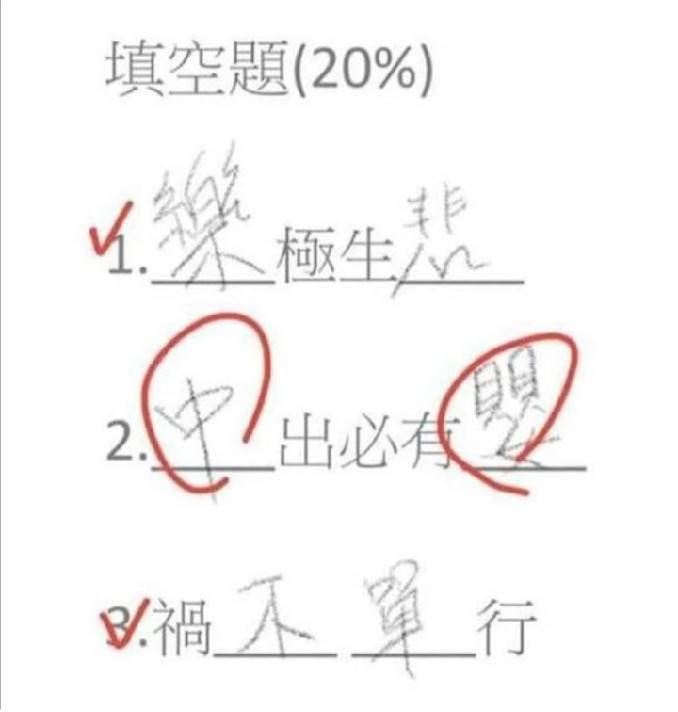 填空題(20%)
1.樂極生悲
2.中出必有嬰
3.禍不單行